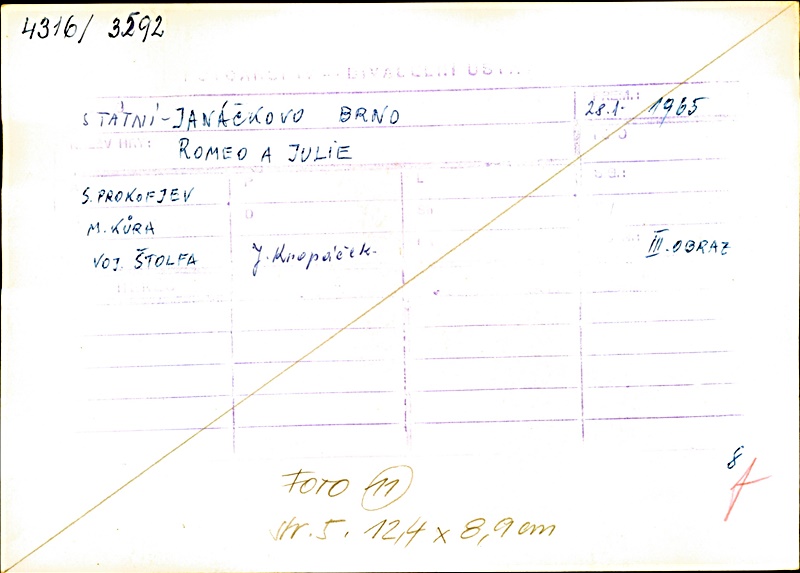 4316/ 3592
STÁTNÍ-JANÁČKOVO BRNO 28.1. 1965
ROMEO A JULIE
S. PROKOFJEV
M. KŮRA
VOJ. ŠTOLFA J. Knopáček. III. OBRAZ
8
FOTO 11
str. 5. 12,4 x 8,9 cm